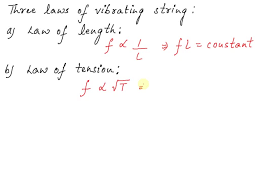 Three laws of vibrating string:
a) Law of length:
f ∝ 1/L ⇒ fL = constant
b) Law of tension:
f ∝ √T =